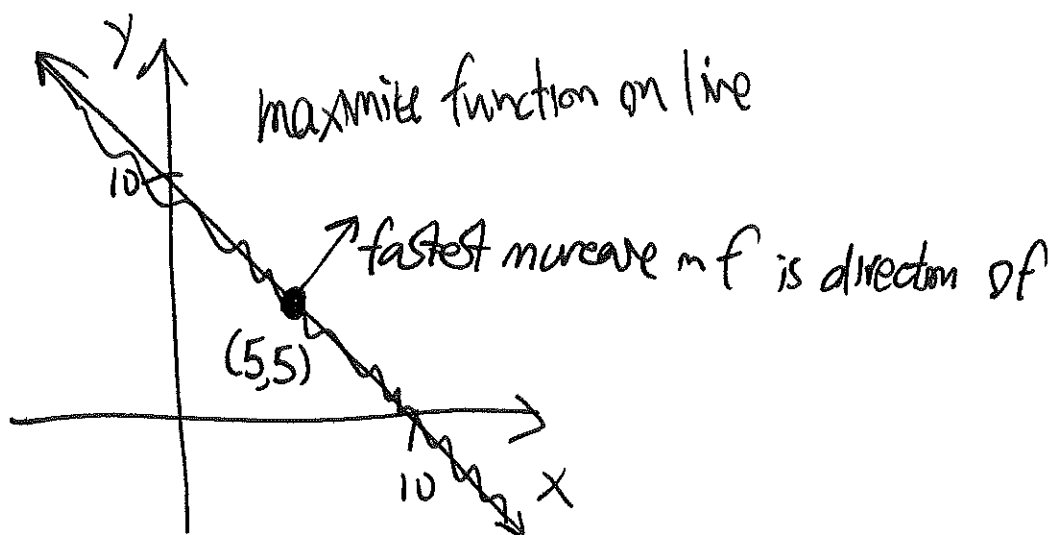 y
maximize function on line
10
fastest increase in f is direction Of
(5,5)
10
X